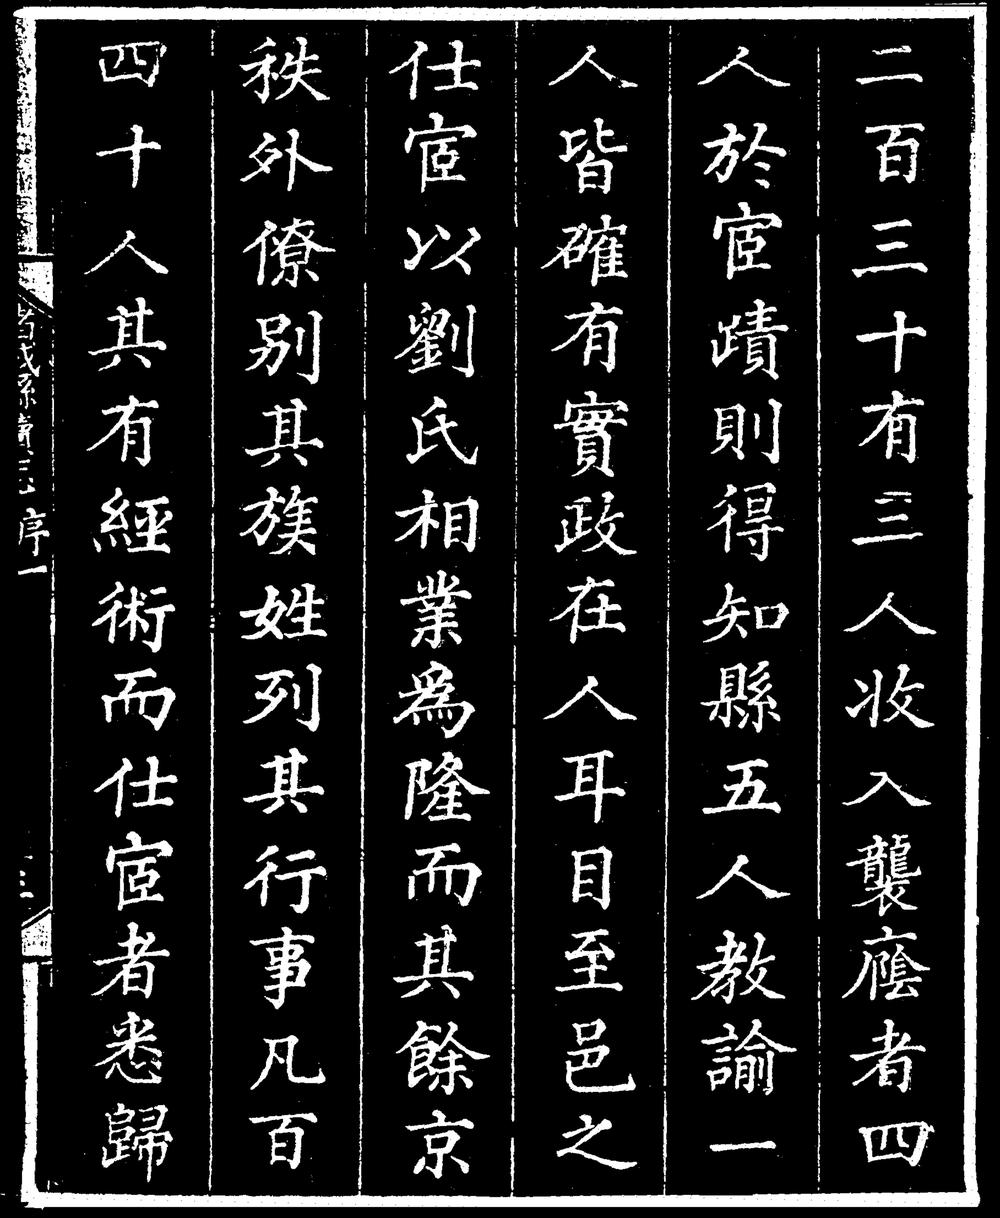 二百三十有三人收入襲廕者四
人於宧蹟則得知縣五人教諭一
人皆確有實政在人耳目至邑之
仕宧以劉氏相業爲隆而其餘京
秩外僚别其族姓列其行事凡百
四十人其有經術而仕宧者悉歸
諸城縣續志 序一